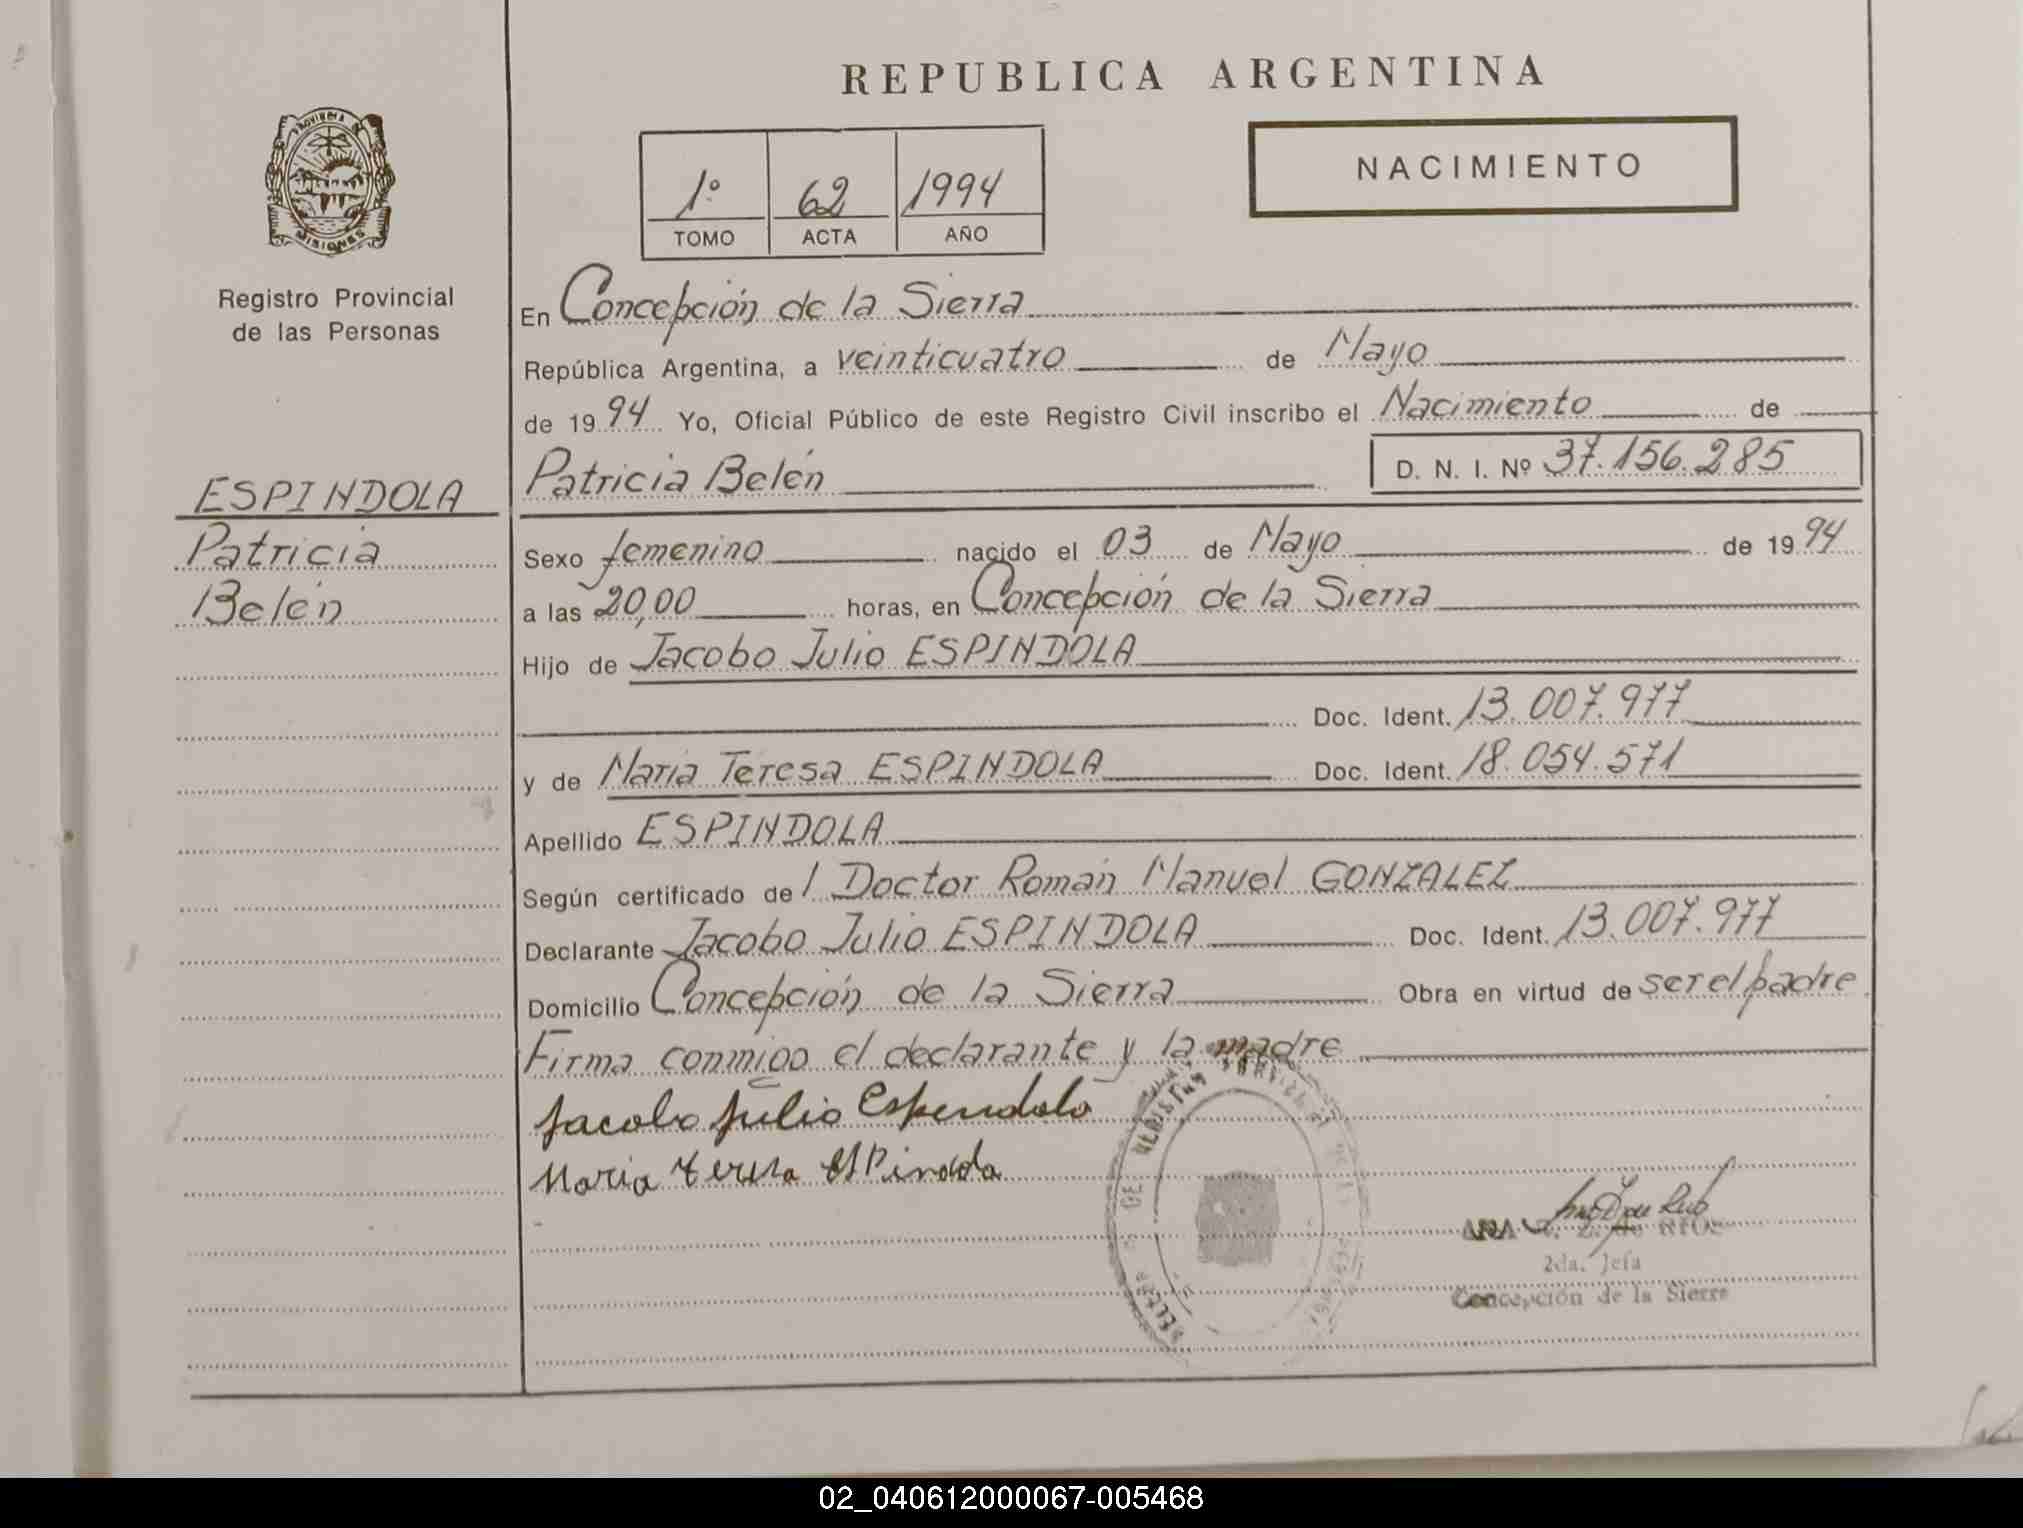 REPUBLICA ARGENTINA
PROVINCIA DE
MISIONES
Registro Provincial
de las Personas
1º 62 1994
TOMO ACTA AÑO
NACIMIENTO
En Concepción de la Sierra
República Argentina, a veinticuatro de Mayo
de 1994 Yo, Oficial Público de este Registro Civil inscribo el Nacimiento de
Patricia Belén D. N. I. Nº 37.156.285
ESPINDOLA
Patricia
Belén
Sexo femenino nacido el 03 de Mayo de 1994
a las 20,00 horas, en Concepción de la Sierra
Hijo de Jacobo Julio ESPINDOLA
Doc. Ident. 13.007.977
y de Maria Teresa ESPINDOLA Doc. Ident. 18.054.571
Apellido ESPINDOLA
Según certificado de l Doctor Román Manuel GONZALEZ
Declarante Jacobo Julio ESPINDOLA Doc. Ident. 13.007.977
Domicilio Concepción de la Sierra Obra en virtud de ser el padre
Firma conmigo el declarante y la madre
Jacobo Julio Espindola
Maria teresa ESPindola
ANA
2da. Jefa
Concepción de la Sierra
02_040612000067-005468